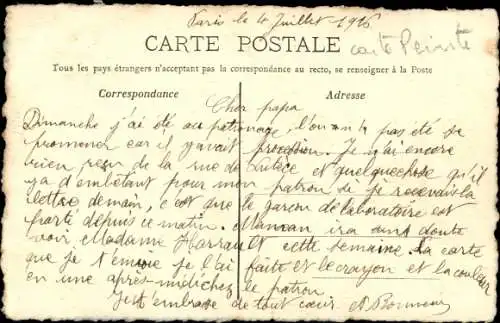 Paris le 4 Juillet 1916
CARTE POSTALE
carte Peinte
Tous les pays étrangers n'acceptant pas la correspondance au recto, se renseigner à la Poste
Correspondance
Adresse
Cher papa
Dimanche j'ai été au patronage, l'on a pas été se
promener car il y avait procession. Je n'ai encore
rien reçu de la rue de Lutèce et quelque chose qu'il
y a d'embêtant pour mon patron si je recevais la
lettre demain, c'est que le garçon de laboratoire est
parti depuis ce matin. Maman ira sans doute
voir Madame cette semaine. La carte
que je t'envoie je l'ai faite et le crayon et la couleur
en une après-midi chez le patron.
Je t'embrasse de tout cœur